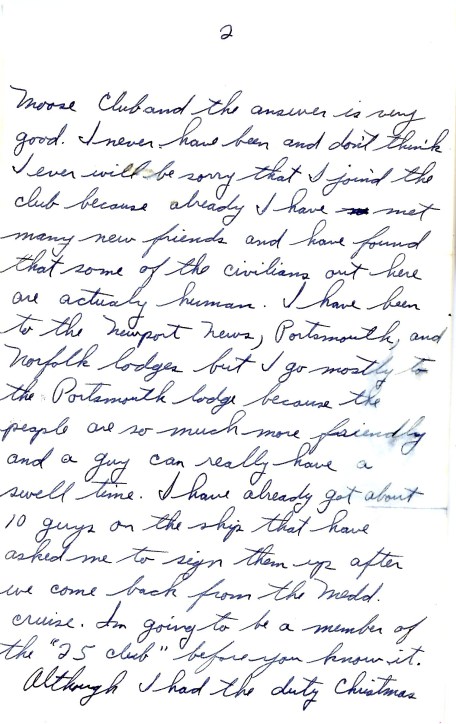 2
Moose Club and the answer is very
good. I never have been and don't think
I ever will be sorry that I joind the
club because already I have met
many new friends and have found
that some of the civilians out here
are actualy human. I have been
to the Newport News, Portsmouth, and
Norfolk lodges but I go mostly to
the Portsmouth lodge because the
people are so much more friendly
and a guy can really have a
swell time. I have already got about
10 guys on the ship that have
asked me to sign them up after
we come back from the Medd.
cruise. Im going to be a member of
the "25 club" before you know it.
Although I had the duty Christmas